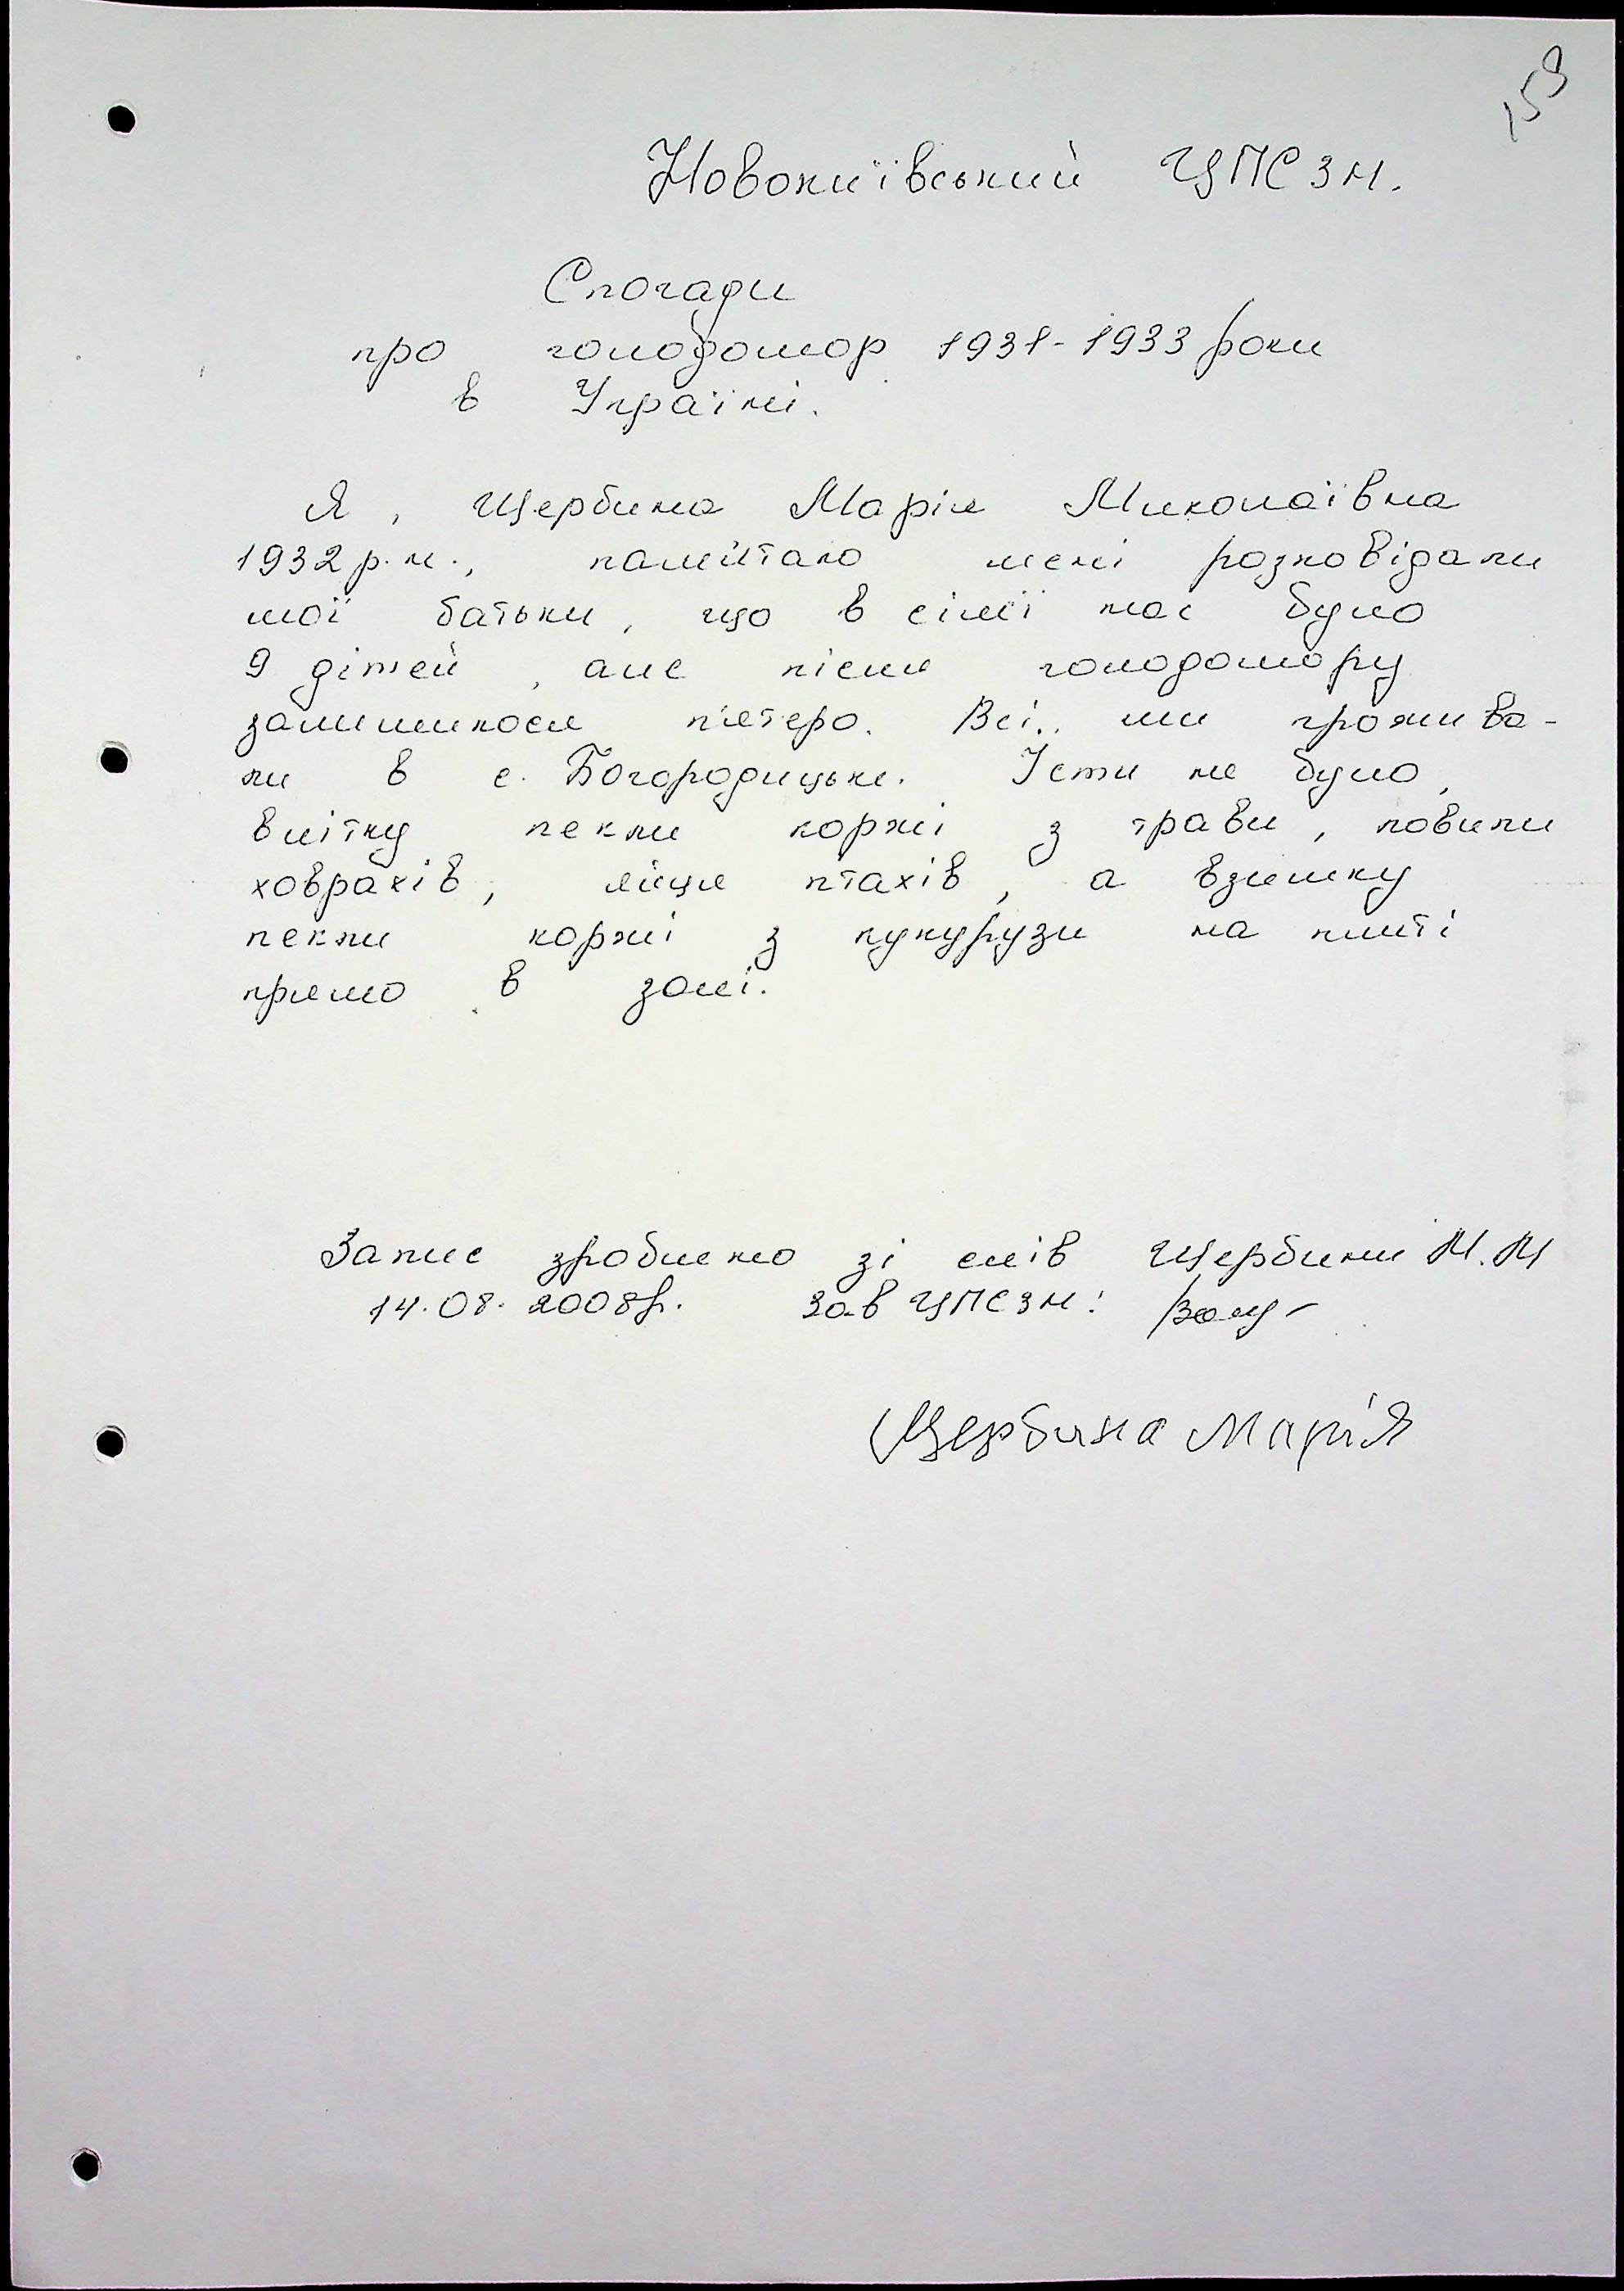 159
Новокиївський ЦПСЗН.
Спогади
про голодомор 1931-1933 роки
в Україні.
Я, Щербина Марія Миколаївна
1932 р.н., памйтаю мені розповідали
мої батьки, що в сімї нас було
9 дітей, але після голодомору
залишилося пятеро. Всі ми прожива-
ли в с. Богородицьке. Їсти не було,
влітку пекли коржі з трави, ловили
ховрахів, яйця птахів, а взимку
пекли коржі з кукурузи на плиті
прямо в золі.
Запис зроблено зі слів Щербини М.М
14.08.2008р. Зав ЦПСЗН:
Щербина Марія